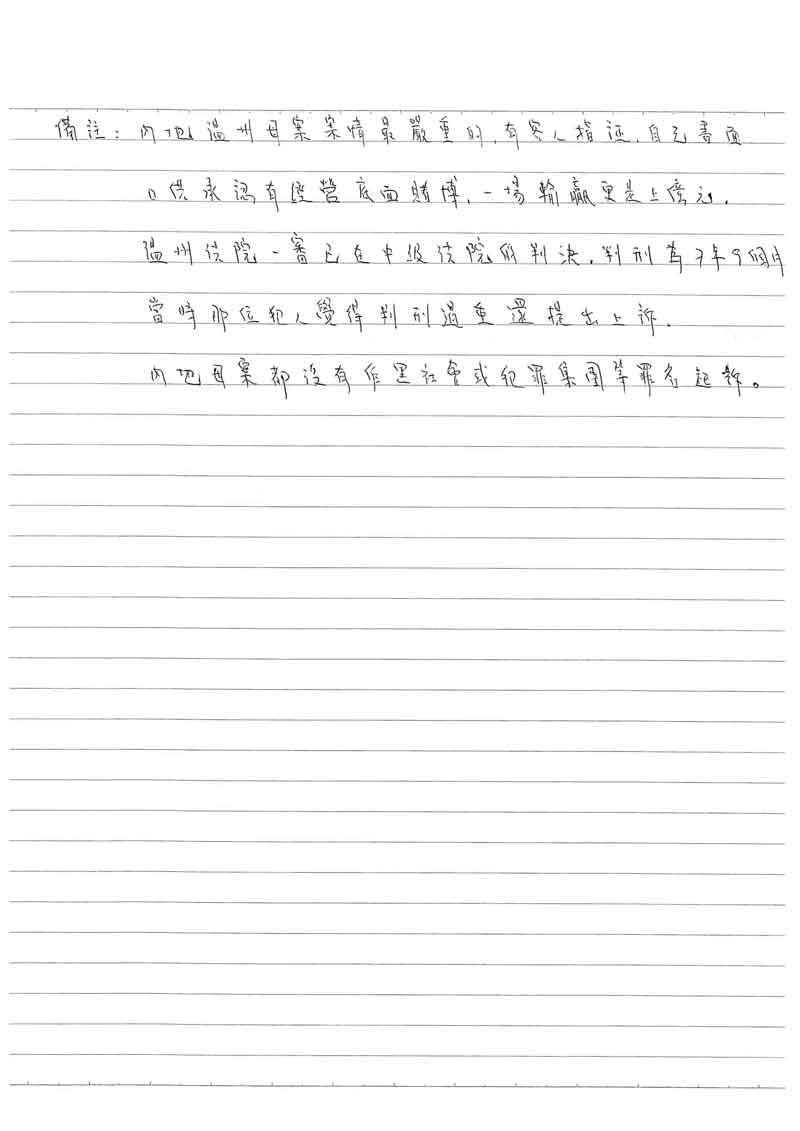 備注：內地溫州母案案情最嚴重的,有客人指証,自己書面
口供承認有經營底面賭博,一場輸贏更是上億元.
溫州法院一審已在中級法院作判決,判刑為7年9個月
當時那位犯人覺得判刑過重還提出上訴.
內地母案都沒有作黑社會或犯罪集團等罪名起訴。